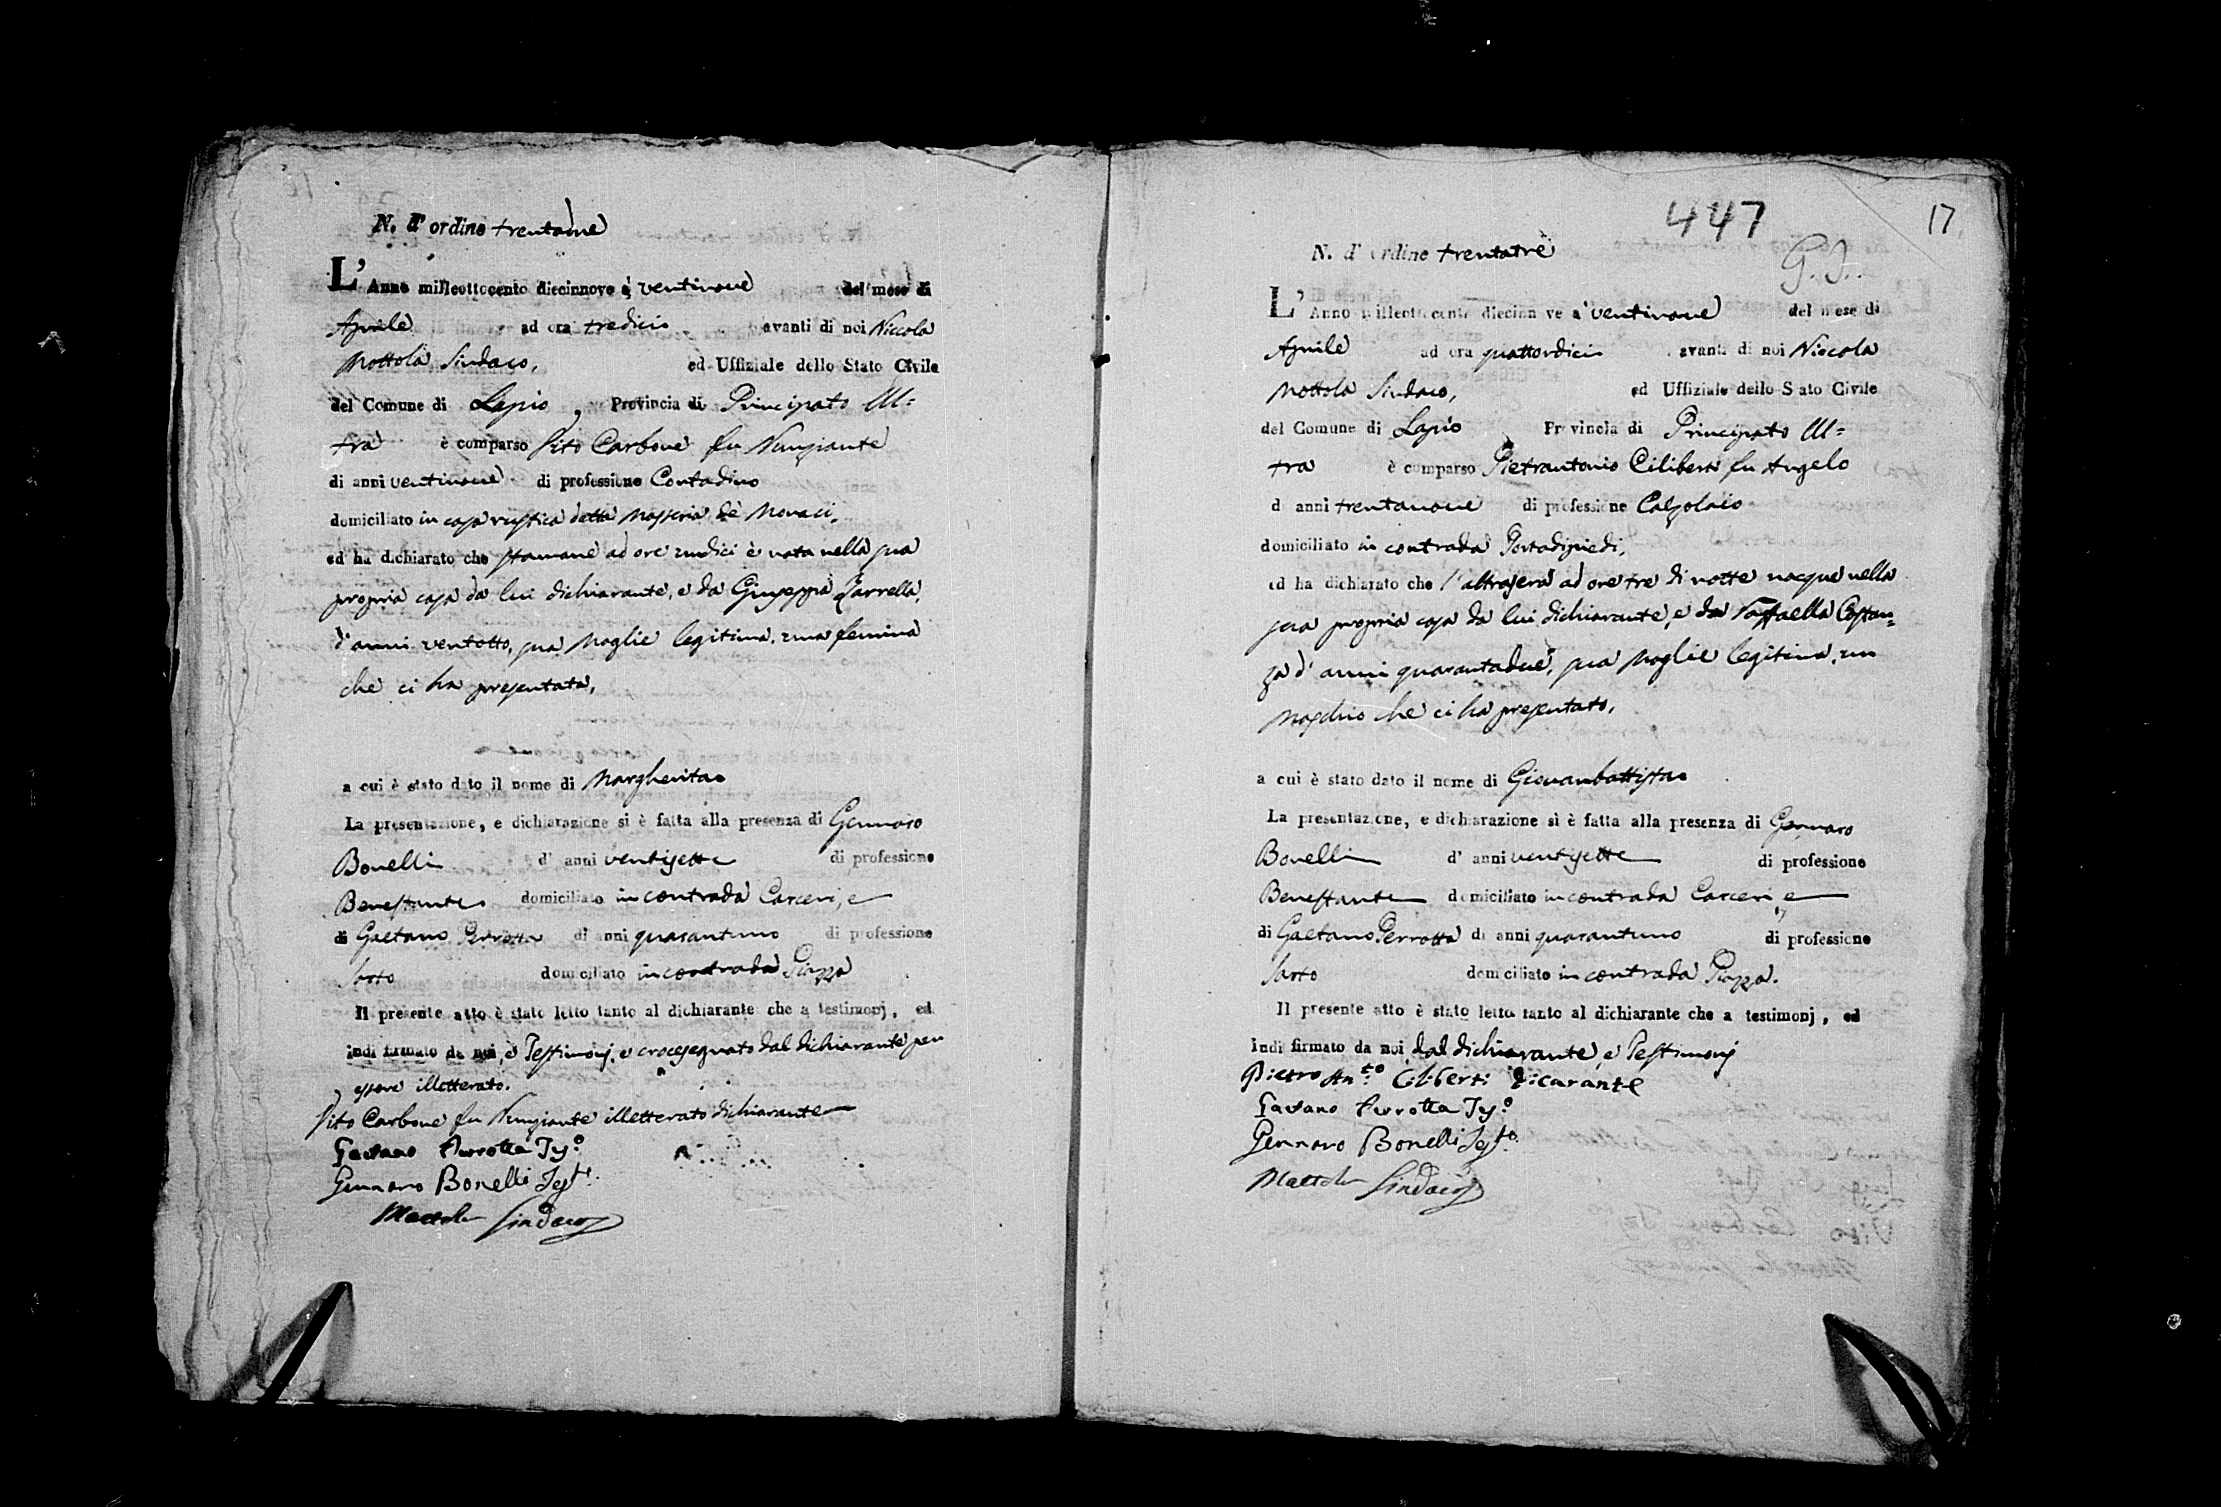 N. d' ordine trentadue
L' Anno milleottocento diecinnove a' ventinove del mese di
Aprile ad ora tredici avanti di noi Niccola
Mottola Sindaco, ed Uffiziale dello Stato Civile
del Comune di Lapio, Provincia di Principato Ul=
tra è comparso Vito Carbone fu Nunziante
di anni ventinove di professione Contadino
domiciliato in casa rustica detta Masseria de' Monaci,
ed ha dichiarato che stamane ad ore undici è nata nella sua
propria casa da lui dichiarante, e da Giuseppa Zarrella,
d'anni ventotto, sua Moglie legitima, una femina
che ci ha presentata,
a cui è stato dato il nome di Margherita
La presentazione, e dichiarazione si è fatta alla presenza di Gennaro
Bonelli d' anni ventisette di professione
Benestante domiciliato in contrada Carceri, e
di Gaetano Perrotta di anni quarantuno di professione
Sarto domiciliato in contrada Piazza
Il presente atto è stato letto tanto al dichiarante che a testimonj, ed
indi firmato da noi, e Testimonj, e crocesegnato dal dichiarante per
essere illetterato.
Vito Carbone fu Nunziante illetterato dichiarante
Gaetano Perrotta Tes.o
Gennaro Bonelli Test.o
Mottola Sindaco
447
17
G. I.
N. d' ordine trentatrè
L' Anno milleottocento diecinnove a' ventinove del mese di
Aprile ad ora quattordici avanti di noi Niccola
Mottola Sindaco, ed Uffiziale dello Stato Civile
del Comune di Lapio Provincia di Principato Ul=
tra è comparso Pietrantonio Ciliberti fu Angelo
di anni trentanove di professione Calzolaio
domiciliato in contrada Portadipiedi,
ed ha dichiarato che l'altrasera ad ore tre di notte nacque nella
sua propria casa da lui dichiarante, e da Raffaella Costan=
za d' anni quarantadue, sua Moglie legitima, un
Maschio che ci ha presentato,
a cui è stato dato il nome di Giovanbattista
La presentazione, e dichiarazione si è fatta alla presenza di Gennaro
Bonelli d' anni ventisette di professione
Benestante domiciliato in contrada Carceri, e
di Gaetano Perrotta di anni quarantuno di professione
Sarto domiciliato in contrada Piazza.
Il presente atto è stato letto tanto al dichiarante che a testimonj, ed
indi firmato da noi, dal dichiarante, e Testimonj
Pietro An.to Ciliberti dicarante
Gaetano Perrotta Tes.o
Gennaro Bonelli Test.o
Mottola Sindaco